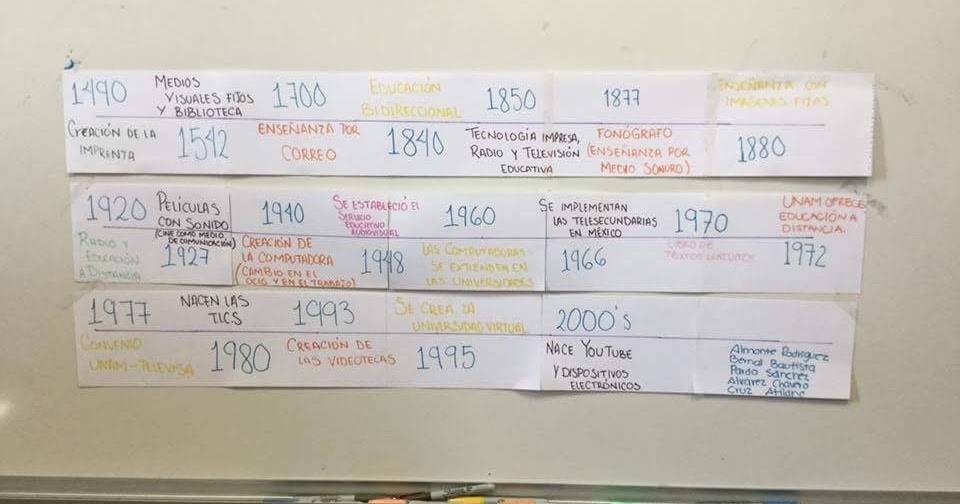 1490
MEDIOS
VISUALES FIJOS
Y BIBLIOTECA
1700
EDUCACIÓN
BIDIRECCIONAL
1850
1877
ENSEÑANZA CON
IMÁGENES FIJAS
CREACIÓN DE LA
IMPRENTA
1542
ENSEÑANZA POR
CORREO
1840
TECNOLOGÍA IMPRESA,
RADIO Y TELEVISIÓN
EDUCATIVA
FONÓGRAFO
(ENSEÑANZA POR
MEDIO SONORO)
1880
1920
PELÍCULAS
CON SONIDO
(CINE COMO MEDIO
DE COMUNICACIÓN)
1940
SE ESTABLECIÓ EL
SERVICIO
EDUCATIVO
AUDIOVISUAL
1960
SE IMPLEMENTAN
LAS TELESECUNDARIAS
EN MÉXICO
1970
UNAM OFRECE
EDUCACIÓN A
DISTANCIA.
RADIO Y
EDUCACIÓN
A DISTANCIA
1927
CREACIÓN DE
LA COMPUTADORA
(CAMBIO EN EL
OCIO Y EN EL TRABAJO)
1948
LAS COMPUTADORAS
SE EXTIENDEN EN
LAS UNIVERSIDADES
1966
LIBRO DE
TEXTOS GRATUITOS
1972
1977
NACEN LAS
TICS
1993
SE CREA LA
UNIVERSIDAD VIRTUAL
2000's
CONVENIO
UNAM-TELEVISA
1980
CREACIÓN DE
LAS VIDEOTECAS
1995
NACE YOUTUBE
Y DISPOSITIVOS
ELECTRÓNICOS
Almonte Rodríguez
Bernal Bautista
Pardo Sánchez
Alvarez Chavero
Cruz Atilano